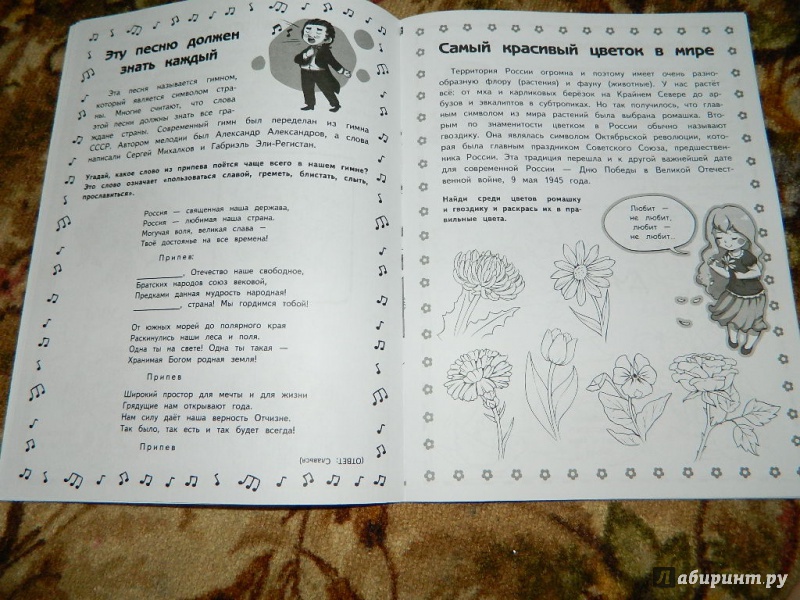 Эту песню должен
знать каждый
Эта песня называется гимном,
который является символом стра-
ны. Многие считают, что слова
этой песни должны знать все гра-
ждане страны. Современный гимн был переделан из гимна
СССР. Автором мелодии был Александр Александров, а слова
написали Сергей Михалков и Габриэль Эль-Регистан.
Угадай, какое слово из припева поётся чаще всего в нашем гимне?
Это слово означает «пользоваться славой, греметь, блистать, слыть,
прославиться».
Россия — священная наша держава,
Россия — любимая наша страна.
Могучая воля, великая слава —
Твоё достоянье на все времена!
Припев:
________, Отечество наше свободное,
Братских народов союз вековой,
Предками данная мудрость народная!
________, страна! Мы гордимся тобой!
От южных морей до полярного края
Раскинулись наши леса и поля.
Одна ты на свете! Одна ты такая —
Хранимая Богом родная земля!
Припев
Широкий простор для мечты и для жизни
Грядущие нам открывают года.
Нам силу даёт наша верность Отчизне.
Так было, так есть и так будет всегда!
Припев
(ОТВЕТ: Славься)
Самый красивый цветок в мире
Территория России огромна и поэтому имеет очень разно-
образную флору (растения) и фауну (животные). У нас растёт
всё: от мха и карликовых берёзок на Крайнем Севере до ар-
бузов и эвкалиптов в субтропиках. Но так получилось, что глав-
ным символом из мира растений была выбрана ромашка. Вто-
рым по знаменитости цветком в России обычно называют
гвоздику. Она являлась символом Октябрьской революции, кото-
рая была главным праздником Советского Союза, предшествен-
ника России. Эта традиция перешла и к другой важнейшей дате
для современной России — Дню Победы в Великой Отечест-
венной войне, 9 мая 1945 года.
Найди среди цветов ромашку
и гвоздику и раскрась их в пра-
вильные цвета.
Любит —
не любит,
любит —
не любит...
Лабиринт.ру